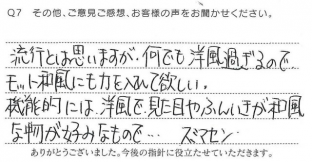 Q7 その他、ご意見ご感想、お客様の声をお聞かせください。
流行とは思いますが、何でも洋風過ぎるので
モット和風にも力を入れて欲しい。
機能的には、洋風で、見た目やふんいきが和風
な物が好みなもので… スマセン
ありがとうございました。今後の指針に役立たせていただきます。